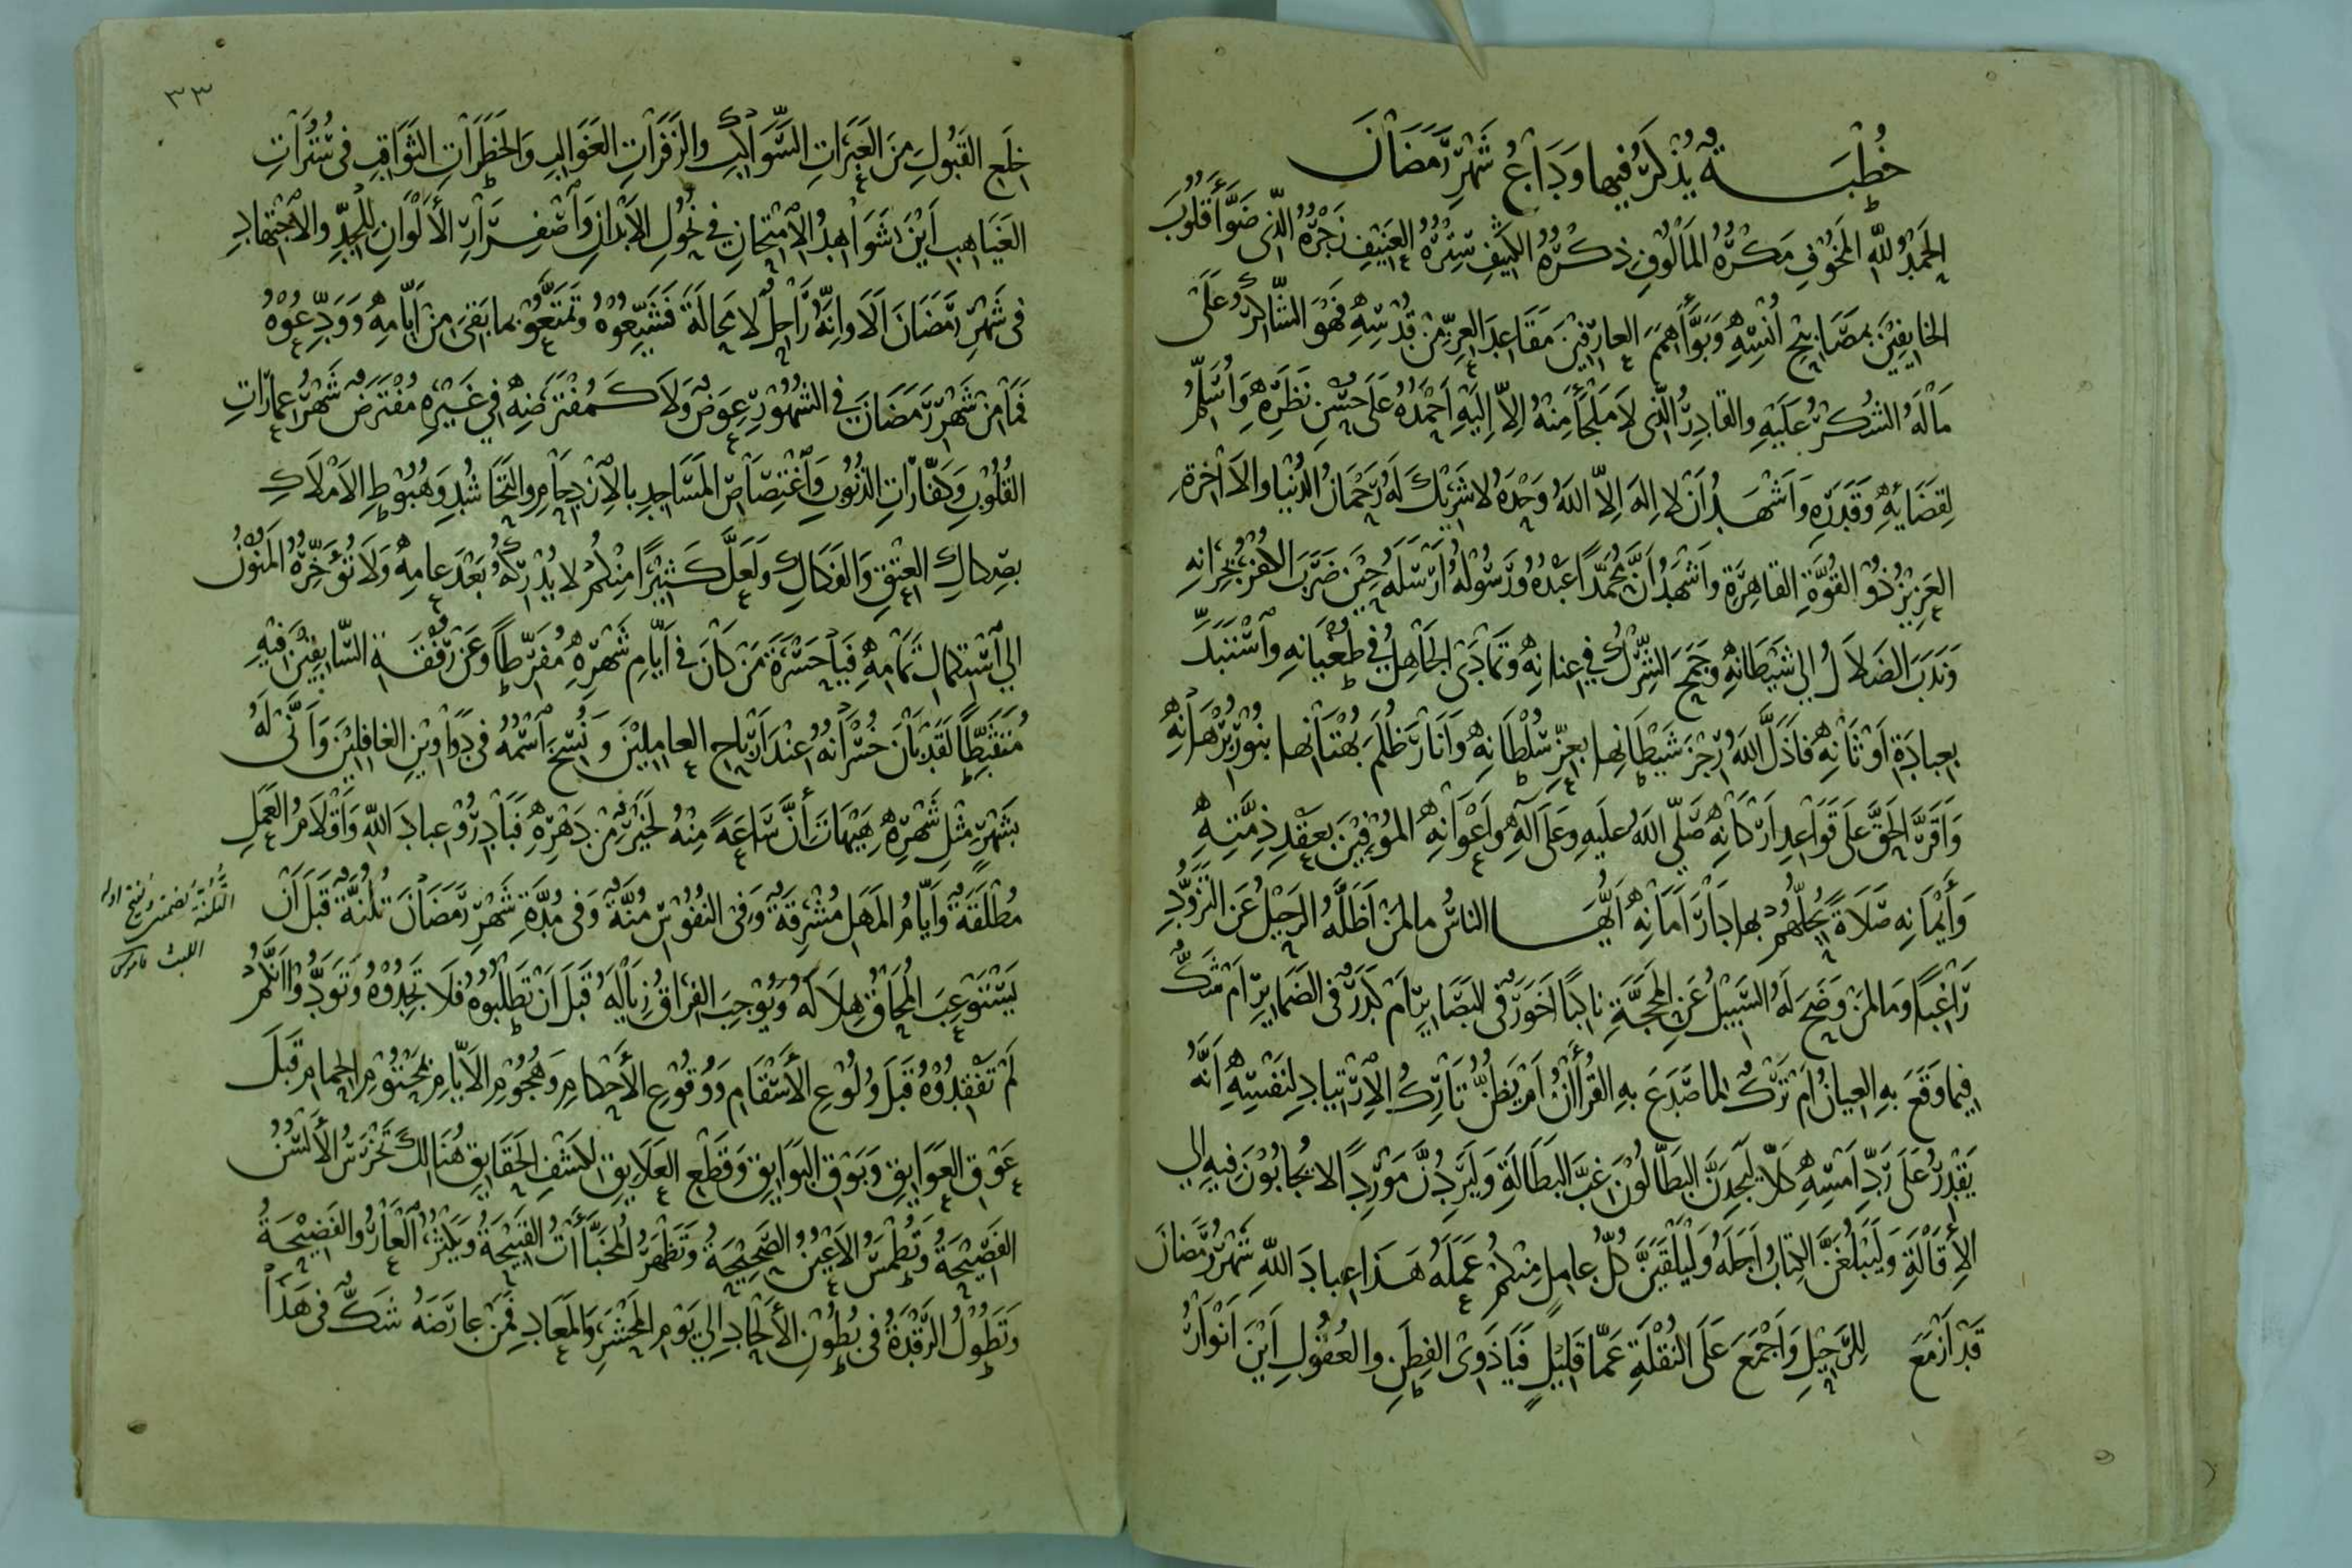 خُطْبَةٌ يُذْكَرُ فِيها وَدَاعُ شَهْرِ رَمَضَانَ
الحَمْدُ لِلّهِ المَخُوفِ مَكْرُهُ المَأْلُوفِ ذِكْرُهُ الكَثِيفِ سِتْرُهُ العَنِيفِ زَجْرُهُ الَّذِى ضَوَّأَ قُلُوبَ
الخايِفِيْنَ بِمَصَابِيْحِ أُنْسِهِ وَبَوَّأَ هِمَمَ العارِفِيْنَ مَقَاعِدَ العِزِّ مِنْ قُدْسِهِ فَهُوَ الشَّاكِرُ عَلَى
مَا لَهُ الشُّكْرُ عَلَيْهِ والقَادِرُ الَّذِى لاَ مَلْجَأَ مِنْهُ اِلاَّ اِلَيْهِ اَحْمَدُهُ عَلَى حُسْنِ نَظَرِهِ وَاُسَلِّمُ
لِقَضَايِهِ وَقَدَرِهِ وَاَشْهَدُ اَنْ لا اِلهَ اِلاَّ اللهُ وَحْدَهُ لا شَرِيْكَ لَهُ رَحْمَانُ الدُّنْيا وَالآخِرَةِ
العَزِيْزُ ذُوْ القُوَّةِ القاهِرَةِ وَاَشْهَدُ اَنَّ مُحَمَّدًا عَبْدُهُ وَرَسُوْلُهُ اَرْسَلَهُ حِيْنَ ضَرَبَ الكُفْرُ بِجِرَانِهِ
وَنَدَبَ الضَلاَلُ اِلَى شَيْطَانِهِ وَجَمَحَ الشِّرْكُ فِي عِنانِهِ وَتَمَادَى الجَاهِلُ فِي طُغْيَانِهِ وَاسْتَبَدَّ
بِعِبادَةِ اَوْثَانِهِ فَاَذَلَّ اللهُ رِجْزَ شَيْطَانِها بِعِزِّ سُلْطَانِهِ وَاَنَارَ ظُلَمَ بُهْتَانِها بِنُوْرِ بُرْهَانِهِ
وَاَقَرَّ الحَقَّ عَلَى قَوَاعِدِ اَرْكَانِهِ صَلَّى اللهُ عَلَيهِ وَعَلَى آلِهِ وَاَعْوَانِهِ المُوْفِيْنَ بِعَقْدِ ذِمَّتِهِ
وَأَيْمَانِهِ صَلاَةً يُحِلُّهُمْ بها دَارَ اَمَانِهِ اَيُّهَا الناسُ ما لِمَنْ اَظَلَّهُ الرَحِيْلُ عَنِ التَزَوُّدِ
رَاغِبًا وَما لِمَنْ وَضَحَ لَهُ السَّبِيْلُ عَنِ المَحَجَّةِ ناكِبًا اَخَوَرٌ فى البَصَايِرِ اَمْ كَدَرٌ فى الضَمَايِرِ اَمْ شَكٌّ
فِيما وَقَعَ بِهِ العِيانُ اَمْ تَرْكٌ لِما صَدَعَ بِهِ القُرْأَانُ اَمْ يَظُنُّ تَارِكُ الاِرْتِيادِ لِنَفْسِهِ اَنَّهُ
يَقْدِرُ عَلَى رَدِّ اَمْسِهِ كَلاَّ لَيَجِدَنَّ البَطَّالُونَ غِبَّ البَطَالَةِ وَلَيَرِدُنَّ مَوْرِدًا لا يُجَابُوْنَ فِيهِ اِلَى
الاِقَالَةِ وَلَيَبْلُغَنَّ الكِتابُ اَجَلَهُ وَلَيَلْقَيَنَّ كُلُّ عامِلٍ مِنْكُمْ عَمَلَهُ هَذا عِبادَ اللهِ شَهْرُ رَمَضانَ
قَدْ اَزْمَعَ لِلرَّحِيْلِ وَاَجْمَعَ عَلَى النُقْلَةِ عَمَّا قَلِيْلٍ فَيَا ذَوِى الفِطَنِ والعُقُولِ اَيْنَ اَنْوَارُ
٣٣
خِلَعِ القَبُولِ مِنَ العَبَرَاتِ السَّوَاكِبِ والزَفَرَاتِ الغَوَالِبِ وَالخَطَرَاتِ الثَوَاقِبِ فى سُتُرَاتِ
الغَيَاهِبِ اَيْنَ شَوَاهِدُ الاِمْتِحانِ فِي نُحُولِ الاَبْدَانِ وَاصْفِرَارِ الأَلْوَانِ لِلْجِدِّ والاِجْتِهادِ
فِى شَهْرِ رَمَضَانَ اَلاَ وَاِنَّهُ رَاحِلٌ لا مَحَالَةَ فَشَيِّعُوهُ وَتَمَتَّعُوْا بما بَقِىَ مِنْ اَيَّامِهِ وَوَدِّعُوْهُ
فَمَا مِنْ شَهْرِ رَمَضَانَ فِي الشُهُورِ عِوَضٌ وَلاَ كَمُفْتَرَضِهِ فِي غَيْرِهِ مُفْتَرَضٌ شَهْرُ عِمَارَاتِ
القُلُوْبِ وَكَفَّارَاتِ الذُنُوْبِ وَاغْتِصَاصِ المَسَاجِدِ بِالاِزْدِحامِ والتَحَاشُدِ وَهُبُوْطِ الاَمْلاَكِ
بِصِكاكِ العِتْقِ وَالفَكَاكِ وَلَعَلَّ كَثِيْرًا مِنْكُمْ لا يُدْرِكُهُ بَعْدَ عامِهِ وَلاَ تُؤَخِّرُهُ المَنُوْنُ
اِلَى اسْتِكمالِ تَمَامِهِ فَيَا حَسْرَةَ مَنْ كَانَ فِى اَيَّامِ شَهْرِهِ مُفَرِّطًا وَعَنْ رُفْقَةِ السَّابِقِيْنَ فِيْهِ
مُتَثَبِّطًا لَقَدْ بَانَ خُسْرَانُهُ عِنْدَ اَرْبَاحِ العامِلِيْنَ وَنُسِخَ اسْمُهُ فى دَوَاوِيْنِ الغافِلِيْنَ وَاَنَّى لَهُ
بِشَهْرٍ مِثْلِ شَهْرِهِ هَيْهَاتَ اَنَّ سَاعَةً مِنْهُ لَخَيْرٌ مِنْ دَهْرِهِ فَبَادِرُوْا عِبادَ اللهِ وَاَقْلاَمُ العَمَلِ
مُطْلَقَةٌ وَاَيَّامُ المَهَلِ مُشْرِقَةٌ وَفى النُفُوْسِ مُنَّةٌ وَفى مُدَّةِ شَهْرِ رَمَضَانَ تُلُنَّةٌ قَبْلَ اَنْ
يَسْتَوْعِبَ المُحَاقُ هِلاَلَهُ وَيُوْجِبَ الفِرَاقُ زِيَالَهُ قَبْلَ اَنْ تَطْلُبُوْهُ فَلاَ تَجِدُوْهُ وَتَوَدُّوْا اَنَّكُمْ
لَمْ تَفْقِدُوْهُ قَبْلَ وُلُوْعِ الأَسْقَامِ وَوُقُوْعِ الأَحْكامِ وَهُجُوْمِ الاَيَّامِ بمَحْتُوْمِ الحِمامِ قَبْلَ
عَوْقِ العَوَايِقِ وَبَوْقِ البَوَايِقِ وَقَطْعِ العَلاَيِقِ لِكَشْفِ الحَقَايِقِ هُنَالِكَ تَخْرَسُ الأَلْسُنُ
الفَصِيْحَةُ وَتُطْمَسُ الاَعْيُنُ الصَّحِيْحَةُ وَتَظْهَرُ المُخَبَّآتُ القَبِيْحَةُ وَيَكْثُرُ العَارُ وَالفَضِيْحَةُ
وَتَطُوْلُ الرَّقْدَةُ فى بُطُوْنِ الأَلْحَادِ اِلَى يَوْمِ المَحْشَرِ وَالمَعَادِ فَمَنْ عارَضَهُ شَكٌّ فى هَذَا
التُّلُنَّةُ بضمتين
اللبث قاموس